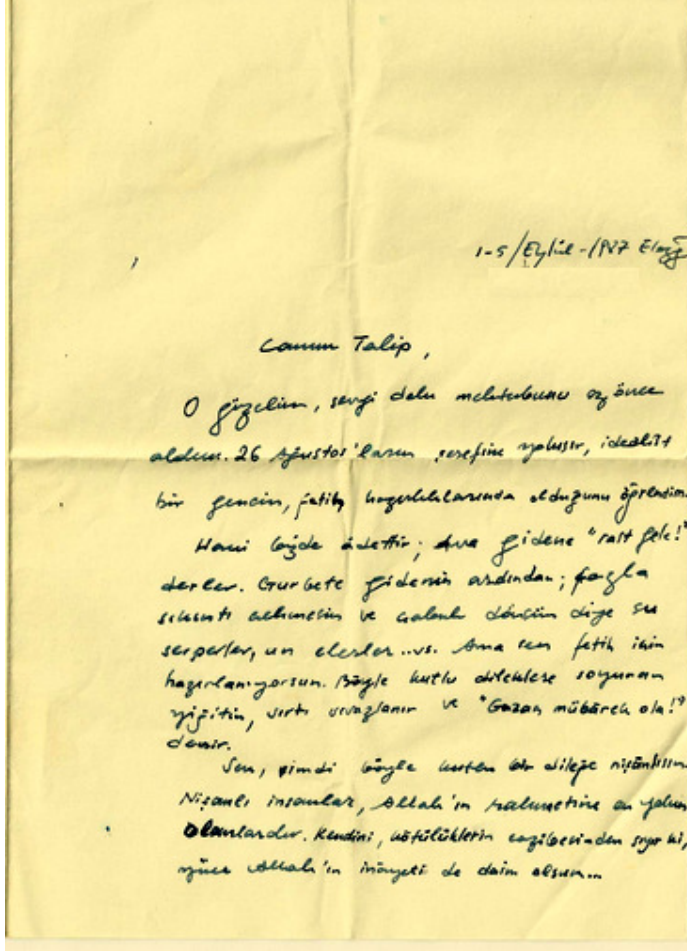 1-5/Eylül-/1987 Elazığ
Canım Talip,
O güzelim, sevgi dolu mektubunu az önce
aldım. 26 Ağustos'ların şerefine yakışır, idealist
bir gencin, fetih hazırlıklarında olduğunu öğrendim.
Hani köyde âdettir; Ava gidene "rast gele!"
derler. Gurbete gidenin ardından; fazla
sıkıntı çekmesin ve çabuk dönsün diye su
serperler, un elerler..vs. Ama sen fetih için
hazırlanıyorsun. Böyle kutlu dileklere soyunan
yiğitin, sırtı sıvazlanır ve "Gazan mübârek ola!"
denir.
Sen, şimdi böyle kutlu bir dileğe nişânlısın.
Nişanlı insanlar, Allah'ın rahmetine en yakın
olanlardır. Kendini, kötülüklerin cazibesinden sıyır ki,
yüce Allah'ın inâyeti de daim olsun...